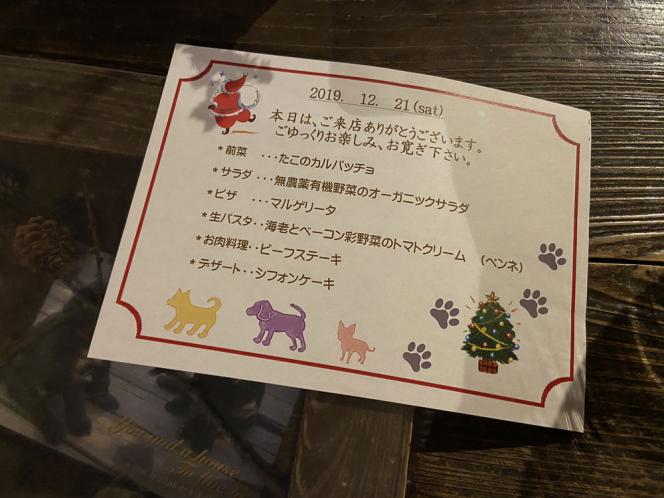 2019. 12. 21(sat)
本日は、ご来店ありがとうございます。
ごゆっくりお楽しみ、お寛ぎ下さい。
*前菜 ･･･たこのカルパッチョ
*サラダ ･･･無農薬有機野菜のオーガニックサラダ
*ピザ ･･･マルゲリータ
*生パスタ･･海老とベーコン彩野菜のトマトクリーム (ペンネ)
*お肉料理･･ビーフステーキ
*デザート･･シフォンケーキ